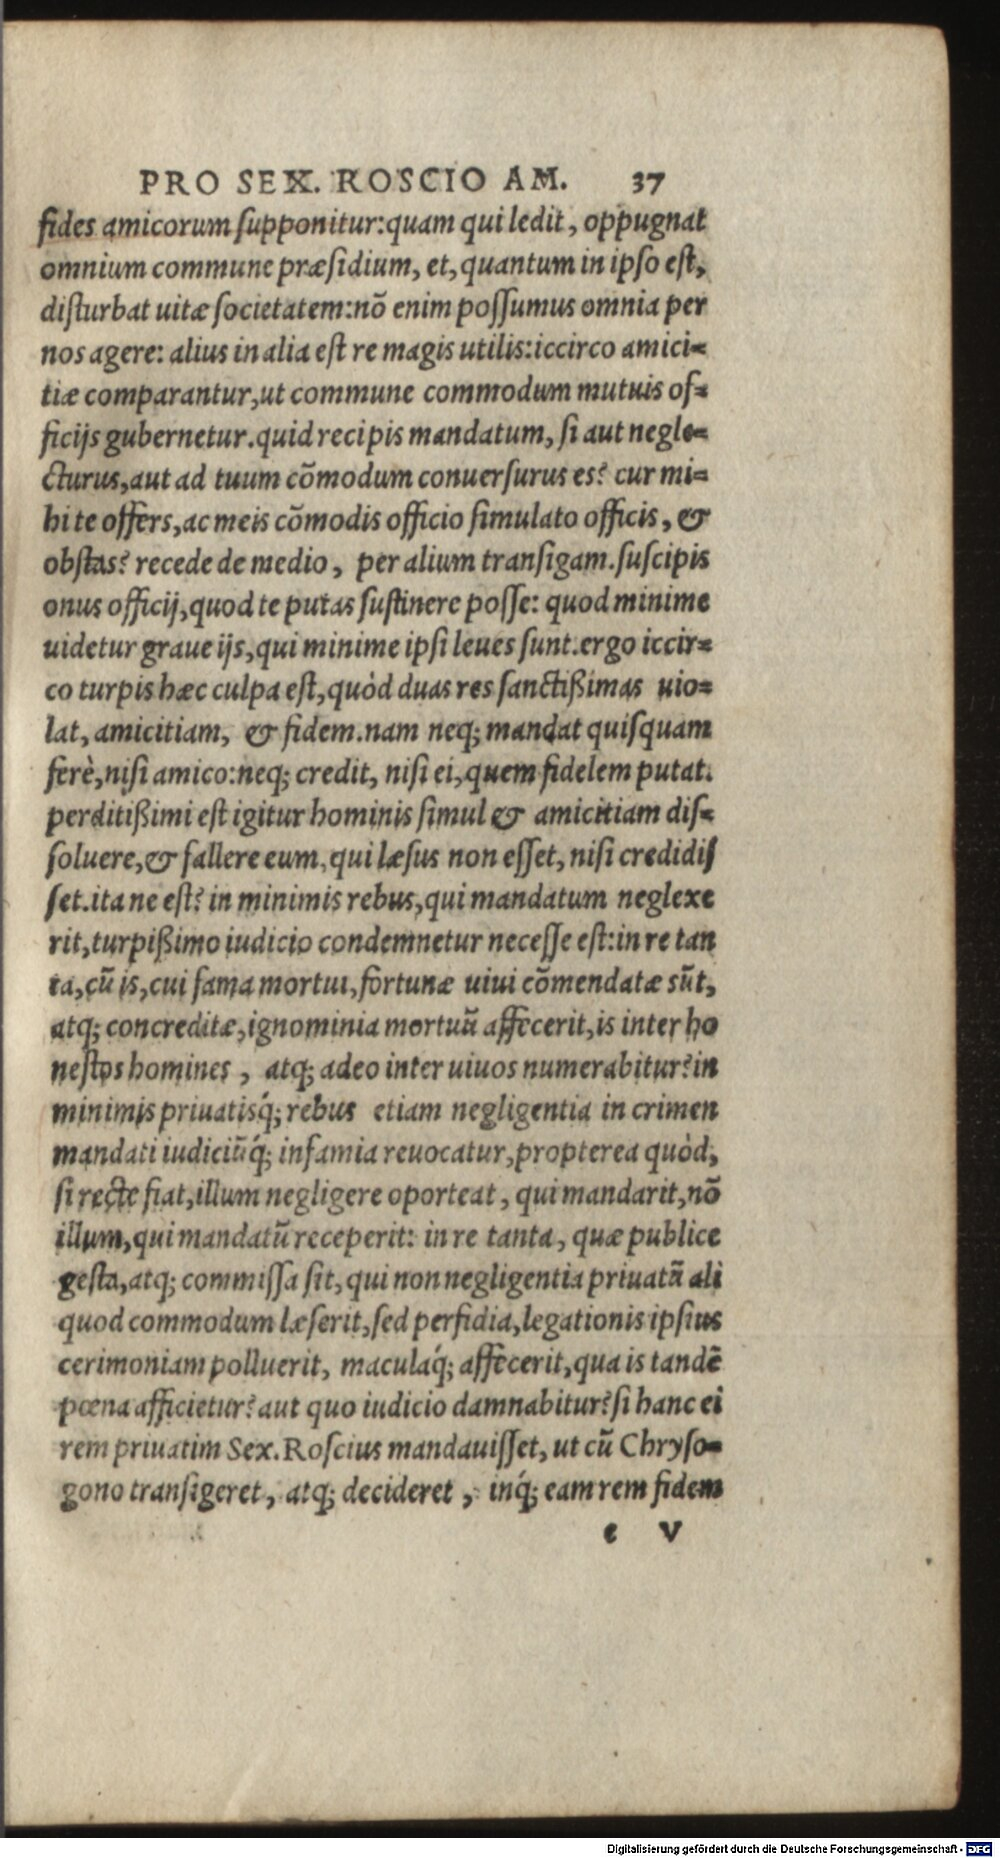 PRO SEX. ROSCIO AM. 37
fides amicorum supponitur:quam qui ledit, oppugnat
omnium commune præsidium, et, quantum in ipso est,
disturbat uitæ societatem:nõ enim possumus omnia per
nos agere: alius in alia est re magis utilis:iccirco amici-
tiæ comparantur,ut commune commodum mutuis of-
ficijs gubernetur.quid recipis mandatum, si aut negle-
cturus,aut ad tuum cõmodum conuersurus es? cur mi-
hi te offers,ac meis cõmodis officio simulato officis, &
obstas? recede de medio, per alium transigam.suscipis
onus officij,quod te putas sustinere posse: quod minime
uidetur graue ijs,qui minime ipsi leues sunt.ergo iccir-
co turpis hæc culpa est,quòd duas res sanctißimas uio-
lat, amicitiam, & fidem.nam neq; mandat quisquam
ferè,nisi amico:neq; credit, nisi ei,quem fidelem putat.
perditißimi est igitur hominis simul & amicitiam dis-
soluere,& fallere eum,qui læsus non esset, nisi credidis
set.ita ne est? in minimis rebus,qui mandatum neglexe
rit,turpißimo iudicio condemnetur necesse est:in re tan
ta,cũ is,cui fama mortui,fortunæ uiui cõmendatæ sũt,
atq; concreditæ,ignominia mortuũ affecerit,is inter ho
nestos homines, atq; adeo inter uiuos numerabitur?in
minimis priuatisq́; rebus etiam negligentia in crimen
mandati iudiciũq́; infamia reuocatur,propterea quòd,
si recte fiat,illum negligere oporteat, qui mandarit,nõ
illum,qui mandatũ receperit: in re tanta, quæ publice
gesta,atq; commissa sit,qui non negligentia priuatã ali
quod commodum læserit,sed perfidia,legationis ipsius
cerimoniam polluerit, maculaq́; affecerit,qua is tandẽ
pœna afficietur? aut quo iudicio damnabitur?si hanc ei
rem priuatim Sex.Roscius mandauisset, ut cũ Chryso-
gono transigeret, atq; decideret, inq́; eam rem fidem
e V
Digitalisierung gefördert durch die Deutsche Forschungsgemeinschaft - DFG